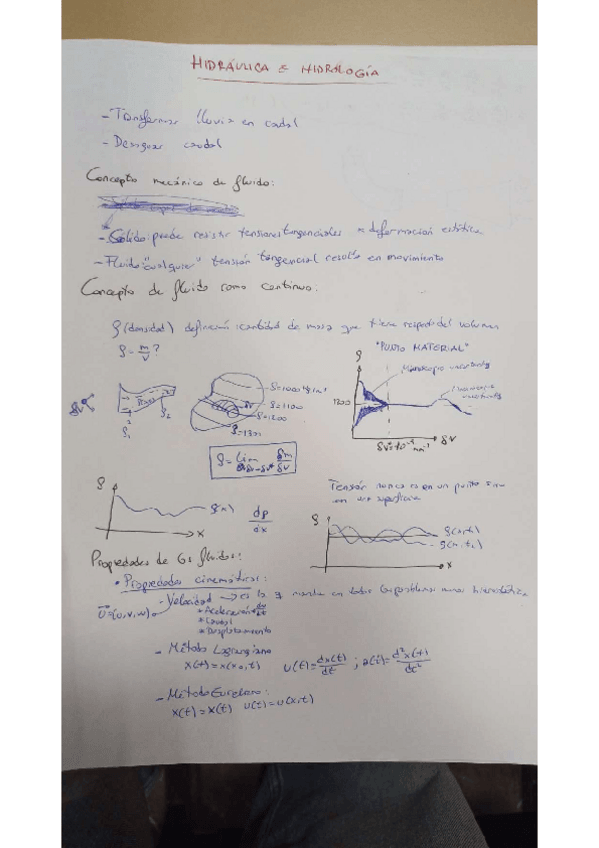 HIDRÁULICA E HIDROLOGÍA
- Transformar lluvia en caudal
- Desaguar caudal
Concepto mecánico de fluido:
- Sólido: puede resistir tensiones tangenciales deformación estática
- Fluido: "cualquier" tensión tangencial resulta en movimiento
Concepto de fluido como continuo:
ρ (densidad) definición: cantidad de masa que tiene respecto del volumen
ρ = m/V ?
"PUNTO MATERIAL"
Microscopic uncertainty
ρ
1200
δV
ρ1
ρ2
ρ=1100
ρ=1200
ρ=1300
ρ = lim δm/δV
δV
Tensión nunca es en un punto sino
en una superficie
ρ
ρ(x)
x
dρ/dx
ρ
ρ(x,t1)
ρ(x,t2)
x
Propiedades de los fluidos:
• Propiedades cinemáticas:
U=(u,v,w) - Velocidad → es la que manda en todos los problemas menos hidrostática
* Aceleración du/dt
* Caudal
* Desplazamiento
- Método Lagrangiano
x(t)=x(x0,t) u(t)=dx(t)/dt ; a(t)=d²x(t)/dt²
- Método Euleriano:
x(t)=x(t) u(t)=u(x,t)